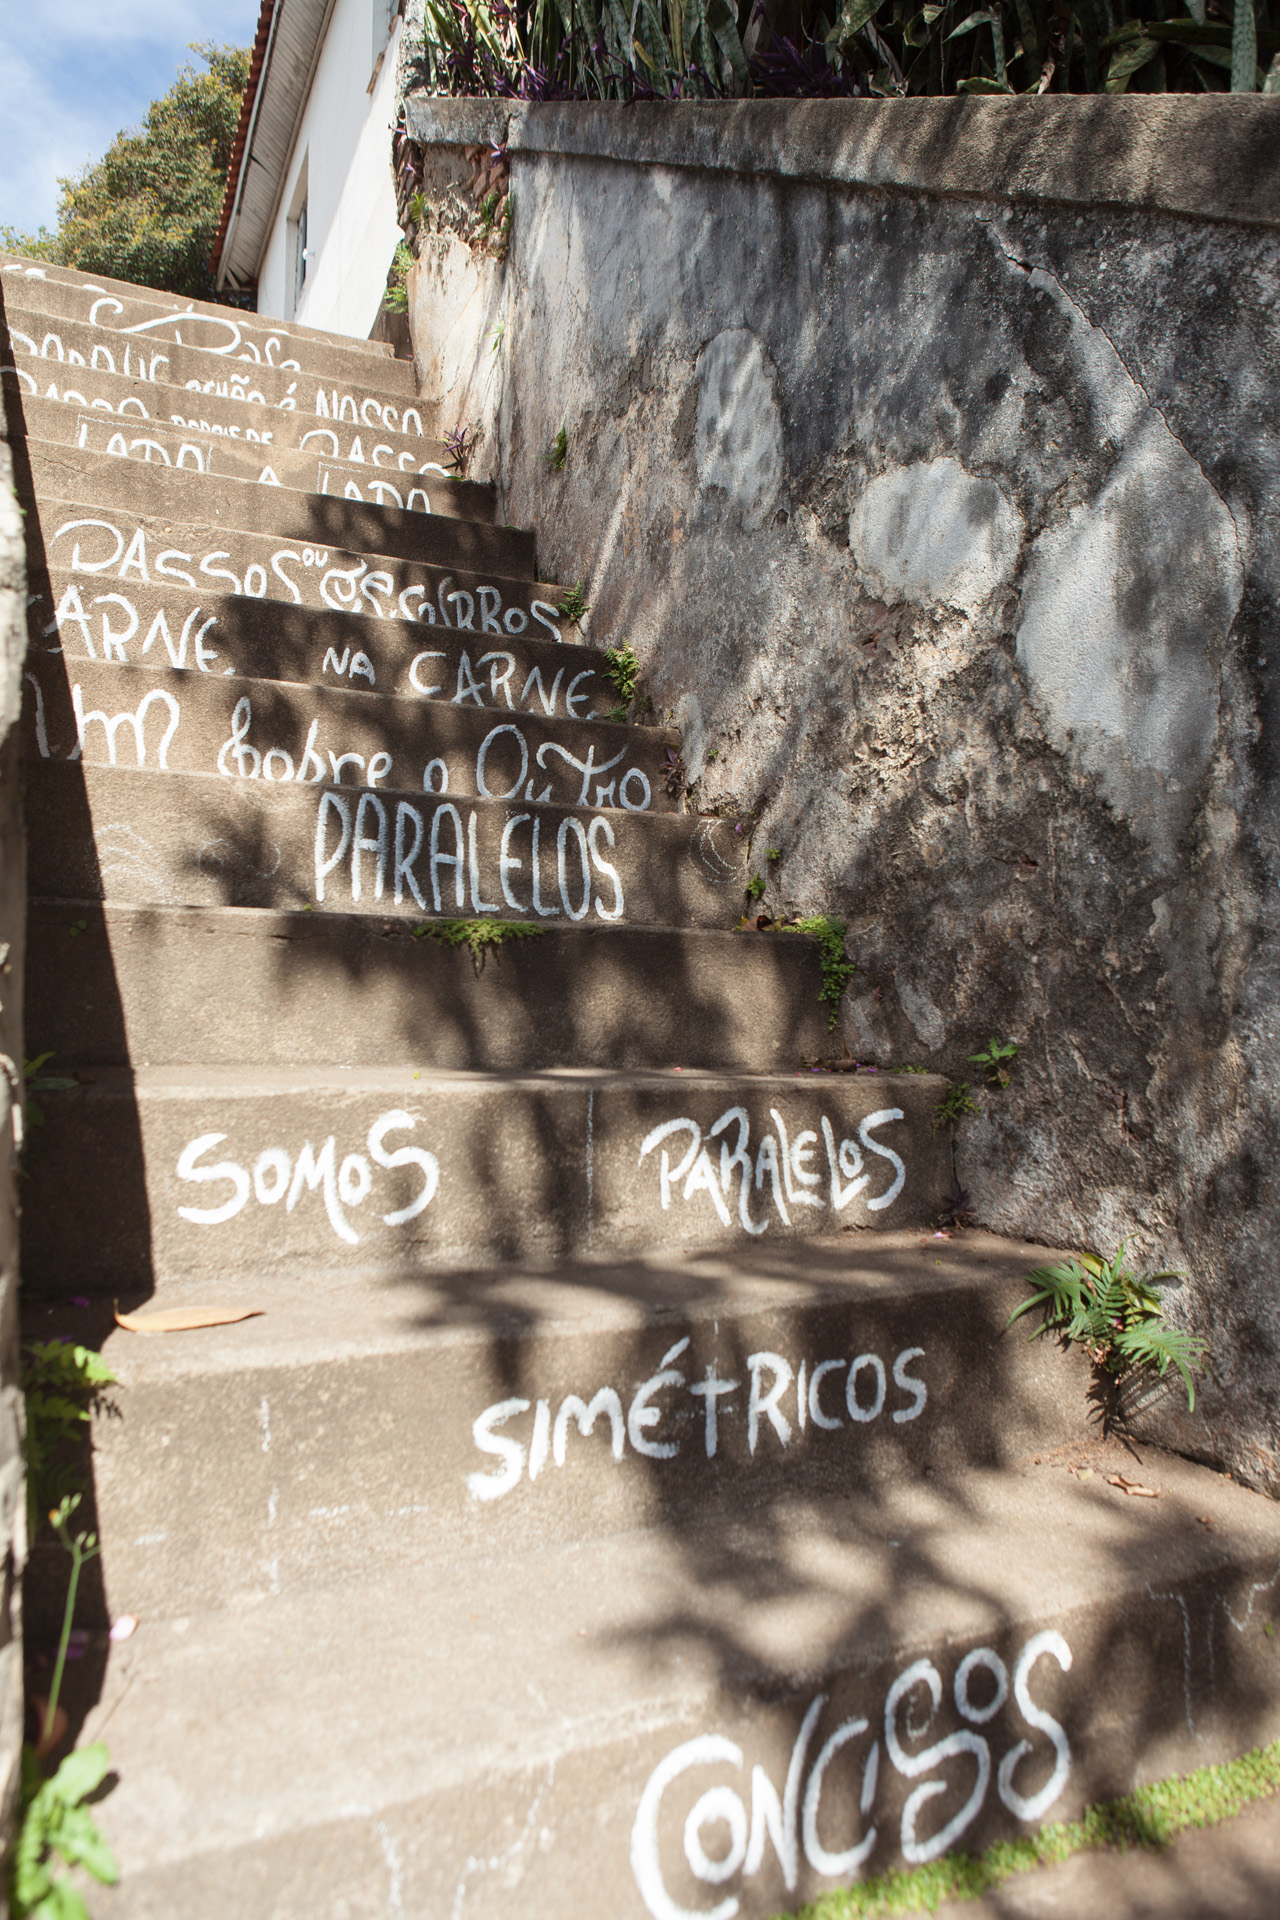 CHÃO é NOSSO
PASSO DEPOIS DE PASSO
LADO A LADO
PASSOS OU
CARNE NA CARNE
Um Sobre o OuTro
PARALELOS
SOMOS PARALELOS
SIMÉTRICOS
CONCISOS